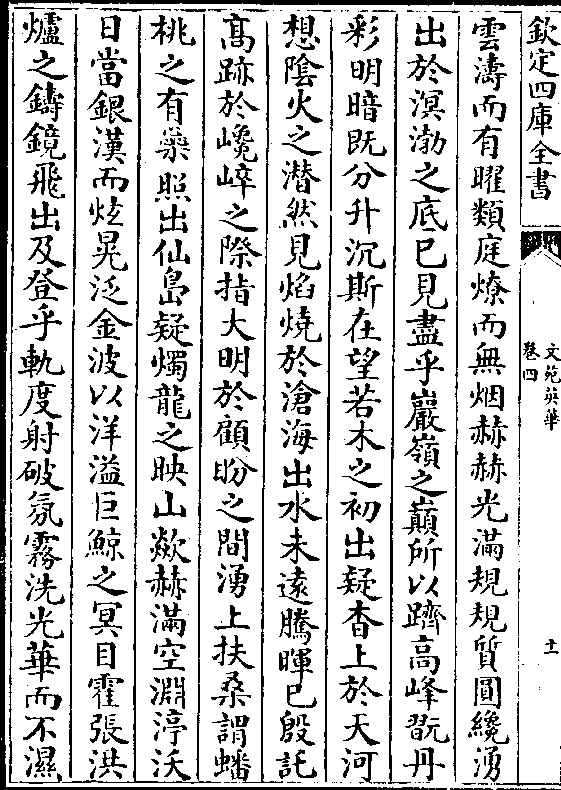 欽定四庫全書
文苑英華
卷四
十一
雲濤而有曜類庭燎而無烟赫赫光滿規規質圓纔湧
出於溟渤之底已見盡乎巖嶺之巔所以躋高峰翫丹
彩明暗既分升沉斯在望若木之初出疑杳上於天河
想陰火之潜然見焰燒於滄海出水未遠騰暉已殷託
髙跡於巉崪之際指大明於顧盻之間湧上扶桑謂蟠
桃之有蘂照出仙島疑燭龍之映山歘赫滿空淵渟沃
日當銀漢而炫晃泛金波以洋溢巨鯨之冥目霍張洪
爐之鑄鏡飛出及登乎軌度射破氛霧洗光華而不濕